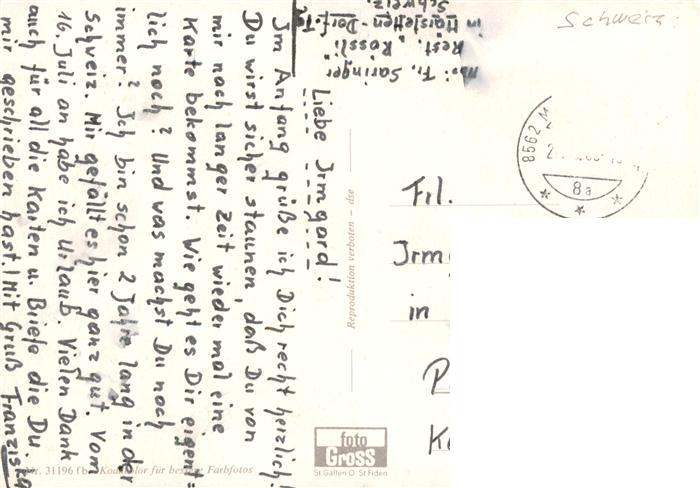 Liebe Irmgard!
Im Anfang grüße ich Dich recht herzlich!
Du wirst sicher staunen, daß Du von
mir nach langer Zeit wieder mal eine
Karte bekommst. Wie geht es Dir eigent=
lich noch? Und was machst Du noch
immer? Ich bin schon 2 Jahre lang in der
Schweiz. Mir gefällt es hier ganz gut. Vom
16. Juli an habe ich Urlaub. Vielen Dank
auch für all die Karten u. Briefe die Du
mir geschrieben hast! Mit Gruß Franziska
Fr. Saringer
Rest. Rössli
in Märstetten-Dorf
Schweiz.
Schweiz
8562 M
8a
Frl.
Irm
in
P
K
Reproduktion verboten – dse
foto
Gross
St. Gallen O St. Fiden
Nr. 31196 für bessere Farbfotos